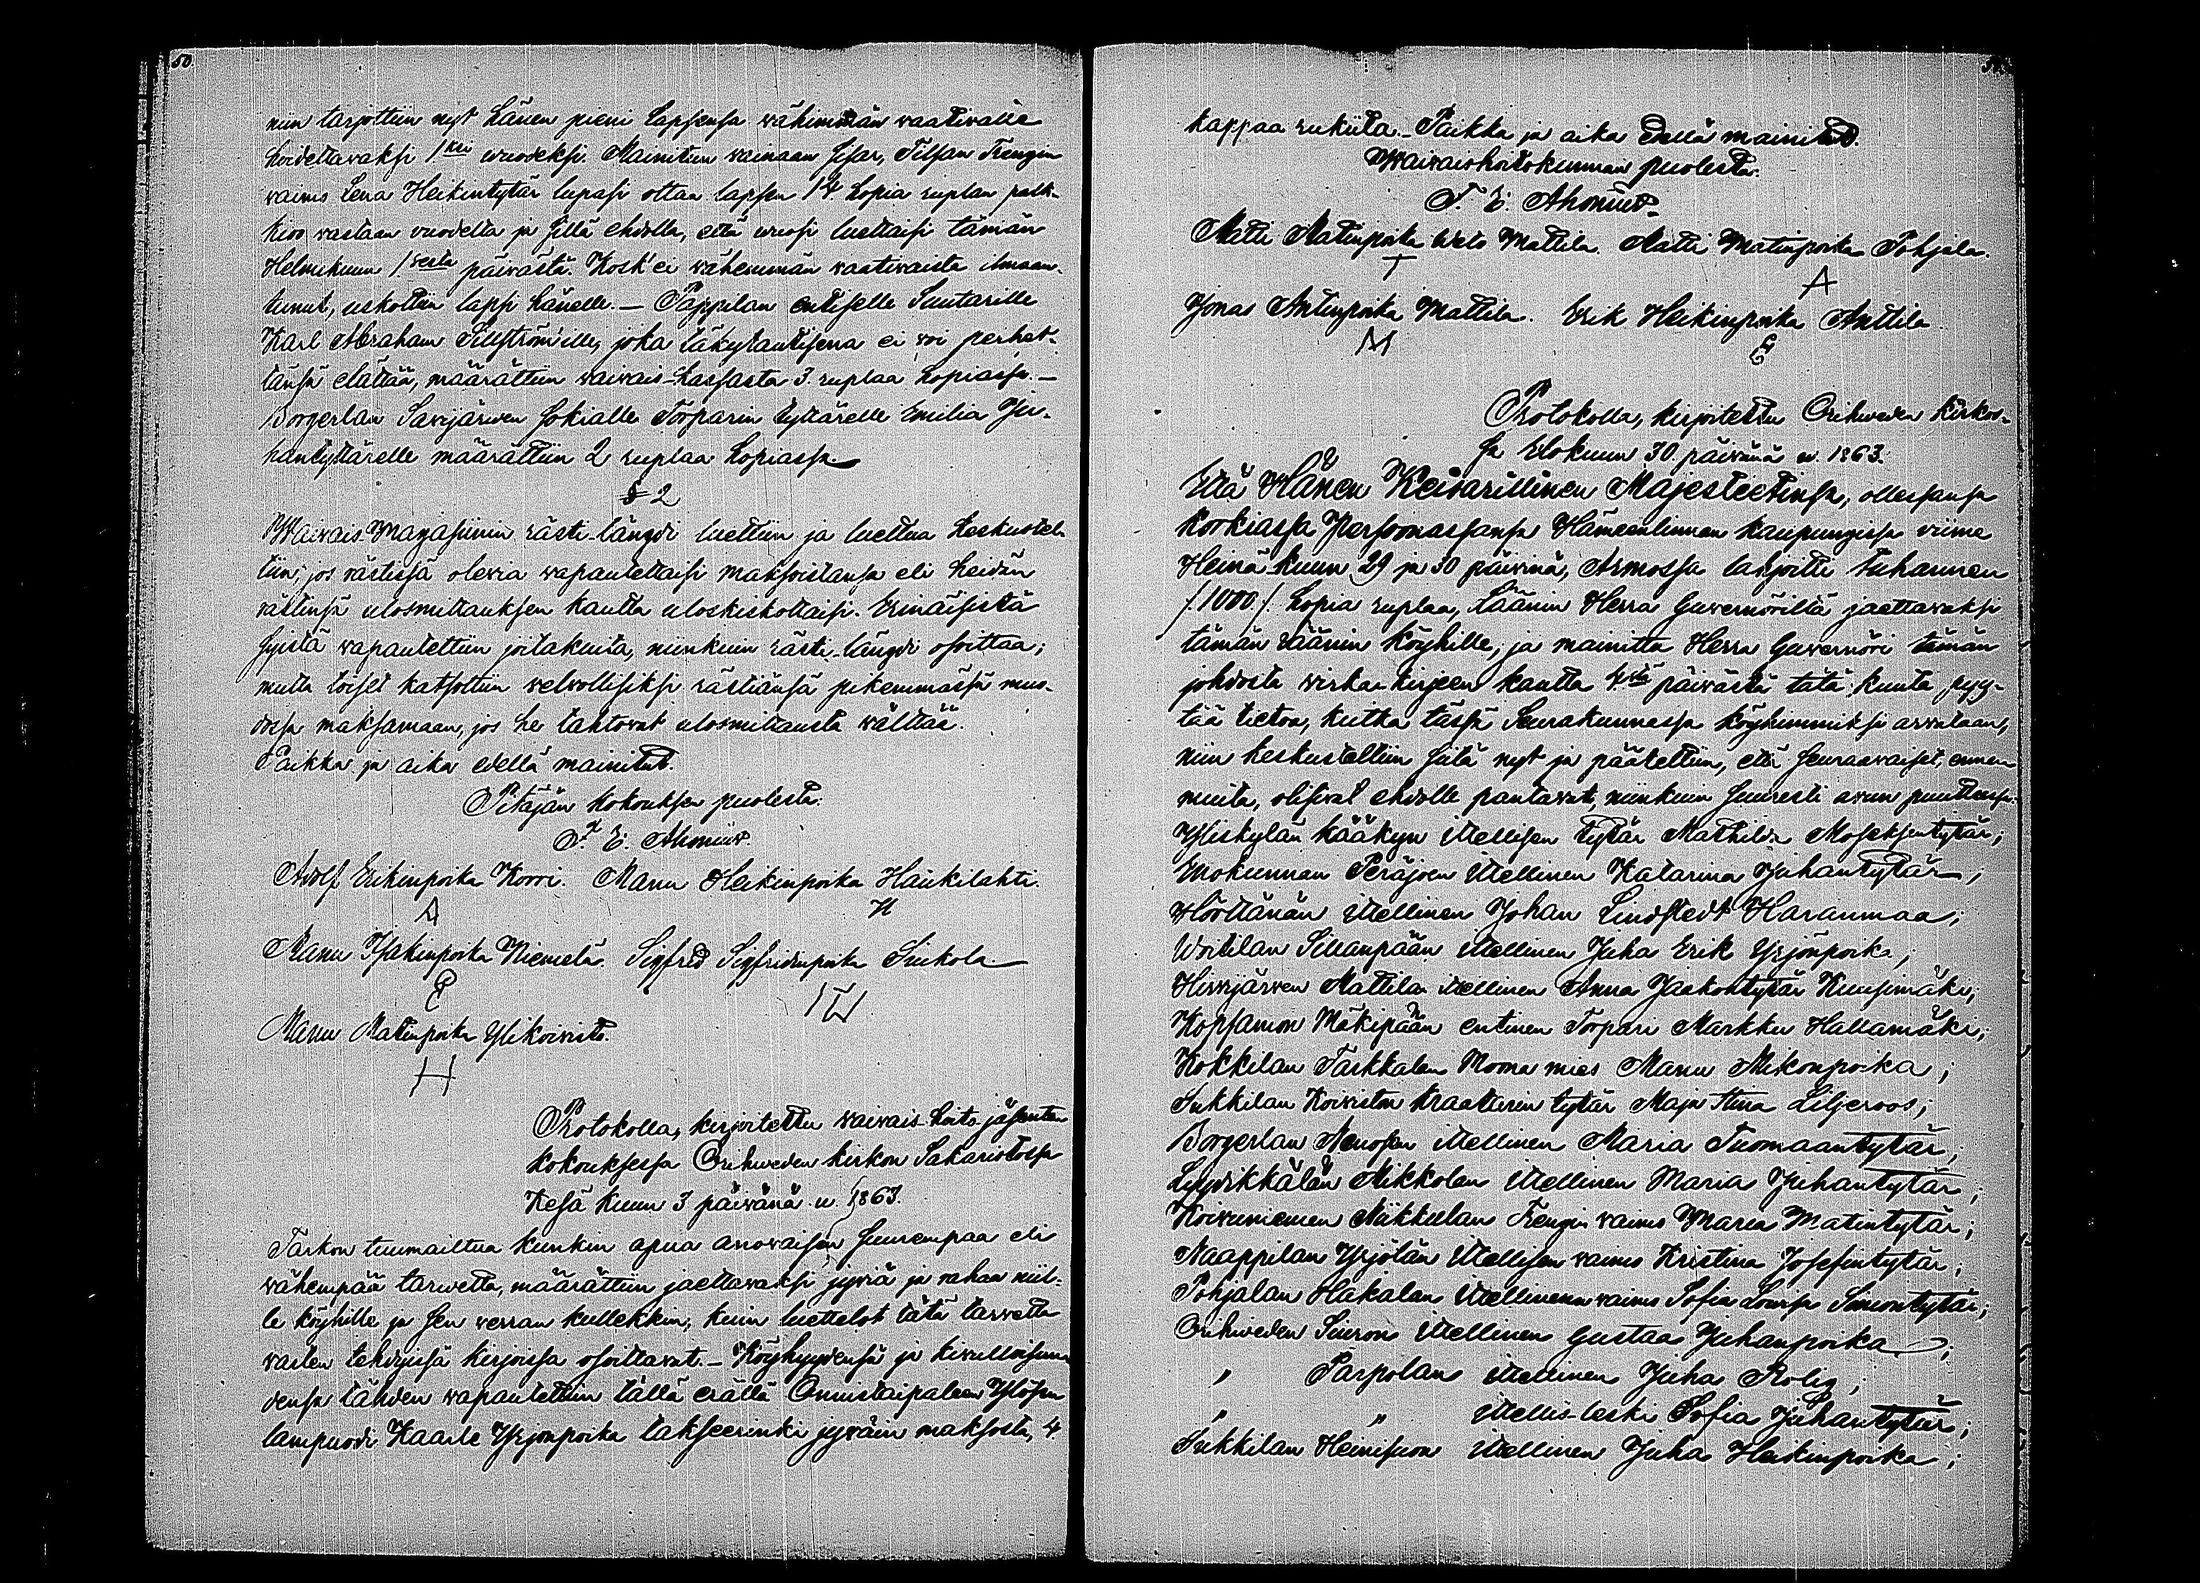 50.
niin tarjottiin nyt hänen pieni lapsensa vähimmän vaativalle
hoidettavaksi 1ksi vuodeksi. Mainitun vainaan sisar, Tilsan Trengin
vaimo Lena Heikintytär lupasi ottaa lapsen 14 hopia ruplan palk-
kioo vastaan vuodelta ja sillä ehdolla, että vuosi luettaisi tämän
Helmikuun 1sestä päivästä. Kosk'ei vähemmän vaativaista ilmaan-
tunut, uskottiin lapsi hänelle. — Pappilan entiselle Suutarille
Karl Abraham Sillström'ille, joka täkytautisena ei voi perhet-
tänsä elättää, määrättiin vaivais-kassasta 3 ruplaa hopiassa. —
Borgerlan Savijärven sokialle Torparin tyttärelle Emilia Ju-
hantyttärelle määrättiin 2 ruplaa hopiassa. —
§ 2
Waivais Magasiinin rästi-längdi luettiin ja luettua keskustel-
tiin, jos rästissä olevia vapautettaisi maksoistansa eli heidän
rästinsä ulosmittauksen kautta uloskiskottaisi. Erinäisistä
syistä vapautettiin joitakuita, niinkuin rästi-längdi osoittaa;
mutta toiset katsottiin velvollisiksi rästiänsä pikemmässä muo-
dossa maksamaan, jos he tahtovat ulosmittausta välttää.
Paikka ja aika edellä mainitut.
Pitäjän kokouksen puolesta:
F. E. Ahonius.
Adolf Erikinpoika Korri. Manu Heikinpoika Haukilahti.
A H
Manu Isakinpoika Niemelä. Sigfrid Sigfridinpoika Siukola
E
Manu Matinpoika Ylikoivisto.
H
Protokolla, kirjoitettu vaivais-hoito jäsenten
kokouksessa Orihweden kirkon Sakaristossa
Kesä kuun 3 päivänä v. 1863.
Tarkon tuumailtua kunkin apua anovaisen suurempaa eli
vähempää tarvetta, määrättiin jaettavaksi jyviä ja rahaa niil-
le köyhille ja sen verran kullekkin, kuin luettelot tätä tarvetta
varten tehdyissä kirjoissa osoittavat. — Köyhyydensä ja kivulloisuu-
densa tähden vapautettiin tällä erällä Onnistaipaleen Ylösen
lampuodi Kaarle Yrjönpoika takseerinki jyväin maksosta, 4
51.
kappaa rukiita. — Paikka ja aika edellä mainitut.
Waivaishoitokunnan puolesta:
F. E. Ahonius
Matti Matinpoika Mattila. Matti Matinpoika Pohjala.
T A
Jonas Antinpoika Mattila. Erik Heikinpoika Anttila
M E
Protokolla, kirjoitettu Orihweden kirkos-
sa Elokuun 30 päivänä v. 1863.
Että Hänen Keisarillinen Majesteetinsa, ollessansa
korkiassa Persoonassansa Hämeenlinnan kaupungissa viime
Heinä kuun 29 ja 30 päivinä, Armossa lahjoitti tuhannen
/:1000:/ hopia ruplaa, Läänin Herra Guvernöriltä jaettavaksi
tämän Läänin köyhille, ja mainittu Herra Guvernöri tämän
johdosta virka-kirjeen kautta 4stä päivästä tätä kuuta pyy-
tää tietoa, kutka tässä Seurakunnassa köyhimmiksi arvataan,
niin keskusteltiin siitä nyt ja päätettiin, että seuraavaiset, ennen
muita, olisivat ehdolle pantavat, niinkuin suuresti avun puuttessa:
Yliskylän Kääkyn Itellisen tytär Mathilda Moseksentytär;
Enokunnan Peräjoen Itellinen Katarina Juhantytär;
Hörttänän Itellinen Johan Lindstedt Haranmaa;
Woitilan Sillanpään Itellinen Juha Erik Yrjönpoika,
Hirvijärven Mattilan Itellinen Anna Jaakontytär Kuusimäki;
Kopsamon Mäkipään entinen Torpari Markku Hallamäki;
Kokkilan Tarkkalan Moona mies Manu Mikonpoika;
Sukkilan Koiviston kraatarin tytär Maja Stina Liljeroos;
Borgerlan Neuosen itellinen Maria Tuomaantytär,
Lyydikkälän Mikkolan Itellinen Maria Juhantytär;
Koivuniemen Nikkulan Trengin vaimo Maria Matintytär;
Naappilan Yrjölän Itellisen vaimo Kristina Josefintytär,
Pohjalan Hakalan Itellinenn vaimo Sofia Lovisa Simontytär;
Orihweden Siuron Itellinen Gustaa Juhanpoika;
" Parpolan Itellinen Juha Rolig;
" " Itellis-leski Sofia Juhantytär;
Sukkilan Heinisuon Itellinen Juha Heikinpoika;